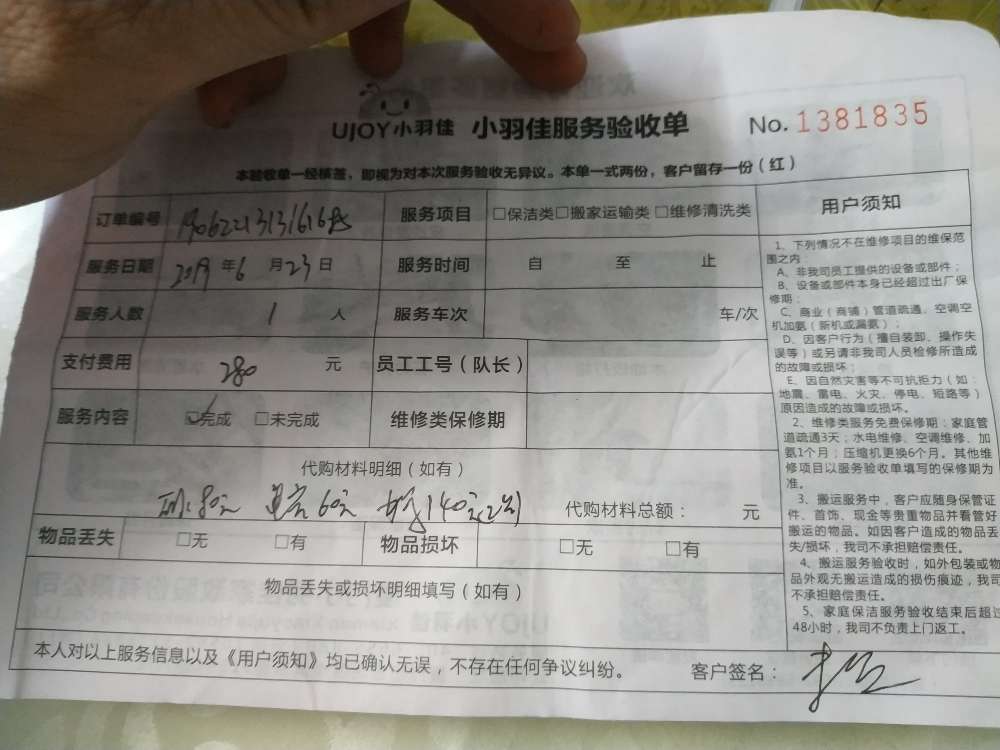 UJOY小羽佳 小羽佳服务验收单 No. 1381835
本验收单一经核签，即视为对本次服务验收无异议。本单一式两份，客户留存一份（红）
订单编号 服务项目 □保洁类□搬家运输类□维修清洗类
服务日期 2019年6月23日 服务时间 自 至 止
服务人数 1 人 服务车次 车/次
支付费用 280 元 员工工号（队长）
服务内容 ☑完成 □未完成 维修类保修期
代购材料明细（如有）
80元 60元 140元 代购材料总额： 元
物品丢失 □无 □有 物品损坏 □无 □有
物品丢失或损坏明细填写（如有）
本人对以上服务信息以及《用户须知》均已确认无误，不存在任何争议纠纷。 客户签名：
用户须知
1、下列情况不在维修项目的维保范
围之内：
A、非我司员工提供的设备或部件；
B、设备或部件本身已经超过出厂保
修期；
C、商业（商铺）管道疏通、空调空
机加氨（新机或漏氨）；
D、因客户行为（擅自装卸、操作失
误等）或另请非我司人员检修所造成
的故障或损坏；
E、因自然灾害等不可抗拒力（如：
地震、雷电、火灾、停电、短路等）
原因造成的故障或损坏。
2、维修类服务免费保修期：家庭管
道疏通3天；水电维修、空调维修、加
氨1个月；压缩机更换6个月。其他维
修项目以服务验收单填写的保修期为
准。
3、搬运服务中，客户应随身保管证
件、首饰、现金等贵重物品并看管好
搬运的物品。如因客户造成的物品丢
失/损坏，我司不承担赔偿责任。
4、搬运服务验收时，如外包装或物
品外观无搬运造成的损伤痕迹，我司
不承担赔偿责任。
5、家庭保洁服务验收结束后超过
48小时，我司不负责上门返工。